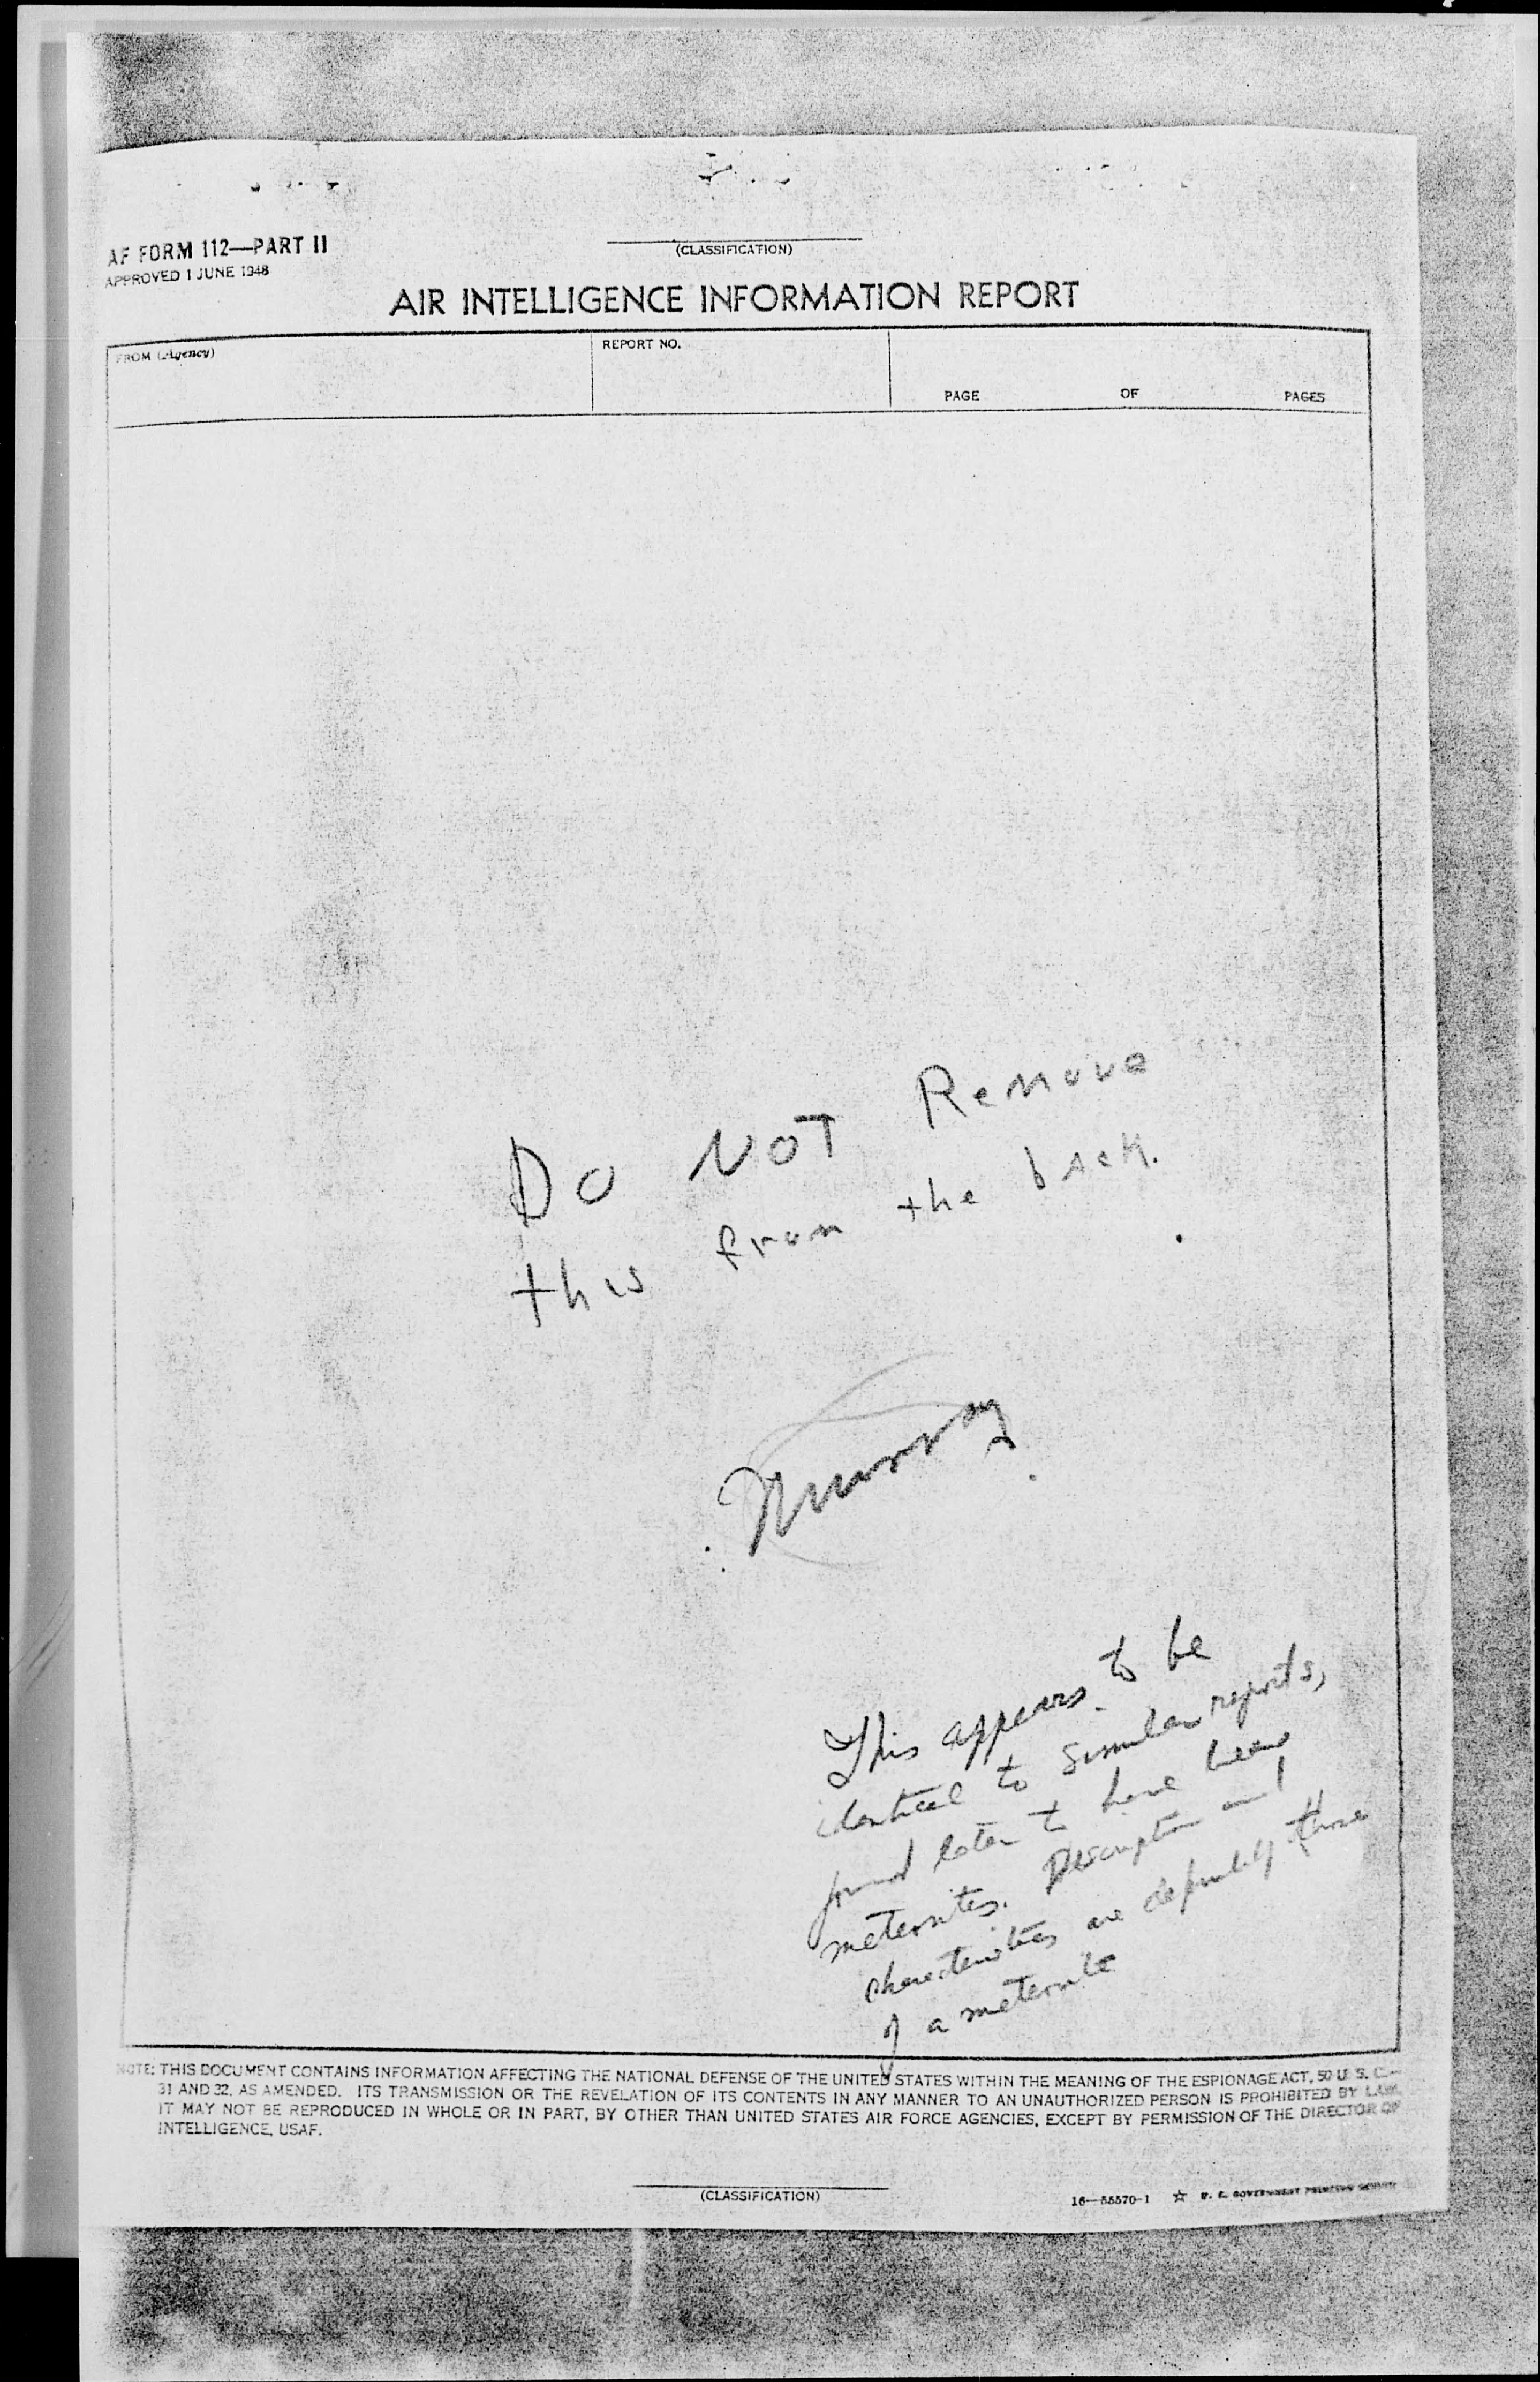 AF FORM 112—PART II
APPROVED 1 JUNE 1948
(CLASSIFICATION)
AIR INTELLIGENCE INFORMATION REPORT
FROM (Agency)
REPORT NO.
PAGE OF PAGES
Do NOT Remove
this from the back.
Murray
This appears to be
identical to similar reports,
found later to have been
meteorites. Description and
characteristics are definitely those
of a meteorite
NOTE: THIS DOCUMENT CONTAINS INFORMATION AFFECTING THE NATIONAL DEFENSE OF THE UNITED STATES WITHIN THE MEANING OF THE ESPIONAGE ACT, 50 U. S. C.—
31 AND 32, AS AMENDED. ITS TRANSMISSION OR THE REVELATION OF ITS CONTENTS IN ANY MANNER TO AN UNAUTHORIZED PERSON IS PROHIBITED BY LAW.
IT MAY NOT BE REPRODUCED IN WHOLE OR IN PART, BY OTHER THAN UNITED STATES AIR FORCE AGENCIES, EXCEPT BY PERMISSION OF THE DIRECTOR OF
INTELLIGENCE, USAF.
(CLASSIFICATION)
16—55570-1 ☆ U. S. GOVERNMENT PRINTING OFFICE